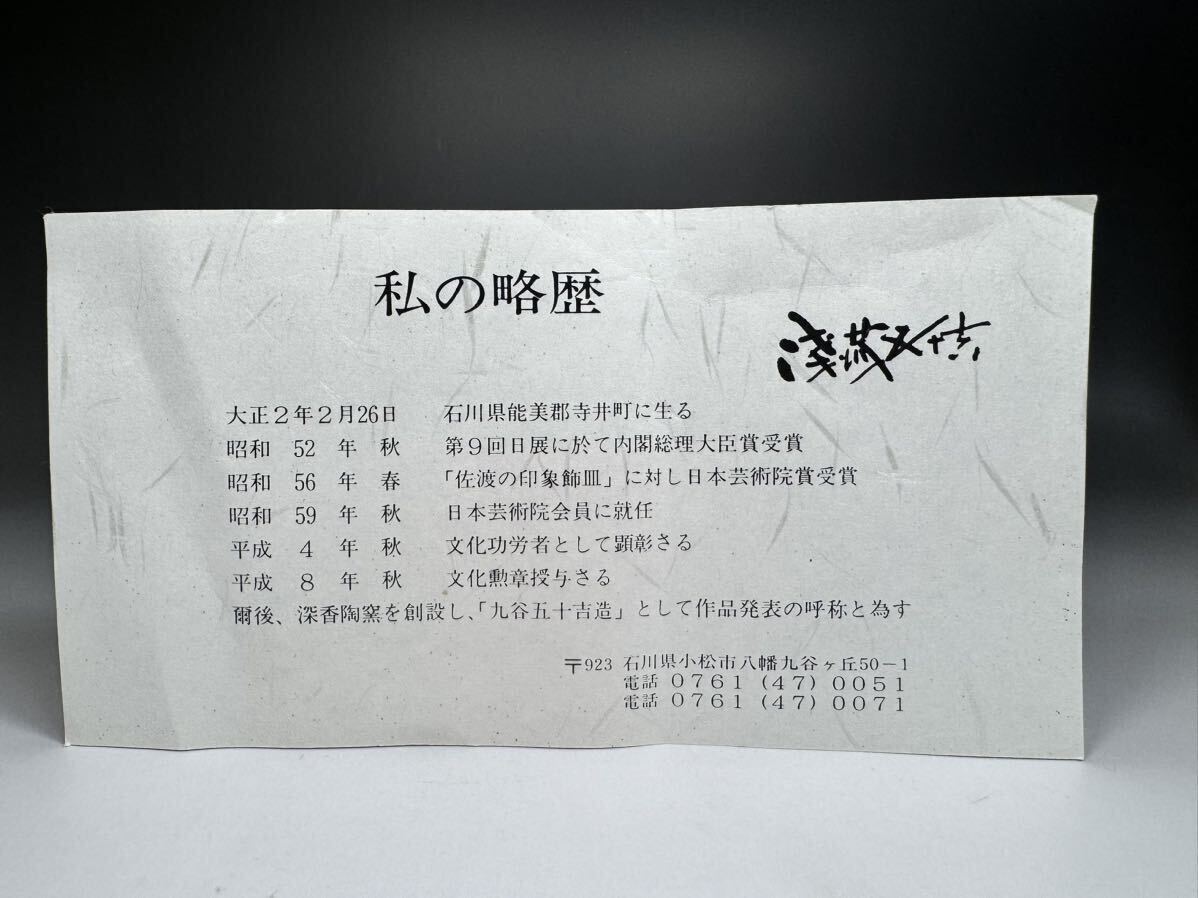 私の略歴
浅蔵五十吉
大正２年２月26日　石川県能美郡寺井町に生る
昭和　52　年　秋　第９回日展に於て内閣総理大臣賞受賞
昭和　56　年　春　「佐渡の印象飾皿」に対し日本芸術院賞受賞
昭和　59　年　秋　日本芸術院会員に就任
平成　４　年　秋　文化功労者として顕彰さる
平成　８　年　秋　文化勲章授与さる
爾後、深香陶窯を創設し、「九谷五十吉造」として作品発表の呼称と為す
〒923　石川県小松市八幡九谷ヶ丘50－1
電話　０７６１（４７）００５１
電話　０７６１（４７）００７１